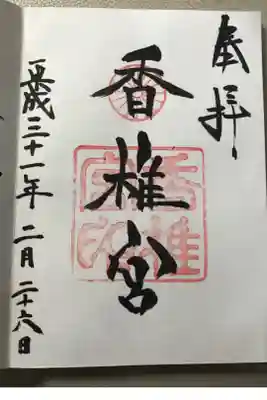 奉拝
香椎宮
平成三十一年二月二十六日